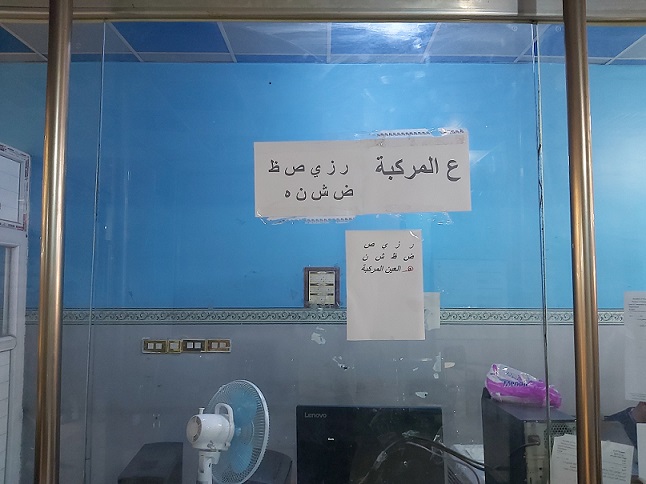 ع المركبة
ر ز ي ص ظ
ض ش ن ه
ر ز ي ص
ض ظ ش ن
هـ العين المركبة
Lenovo